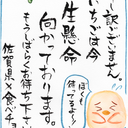 訳ございません。
いちごは今
生懸命
向かっております。
もうしばらくお待ち下さ
佐賀県×食べチョ
待ってるモ〜